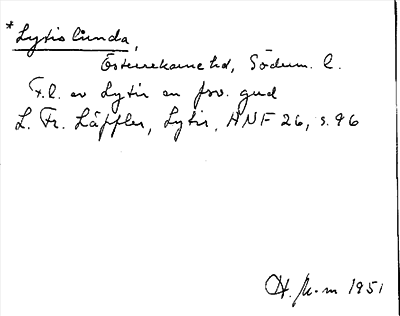 *Lytislunda,
Österrekarne hd, Söderm. l.
F.l. av Lytir en forn. gud
L. Fr. Läffler, Lytir, ANF 26, s. 96
H. 1951